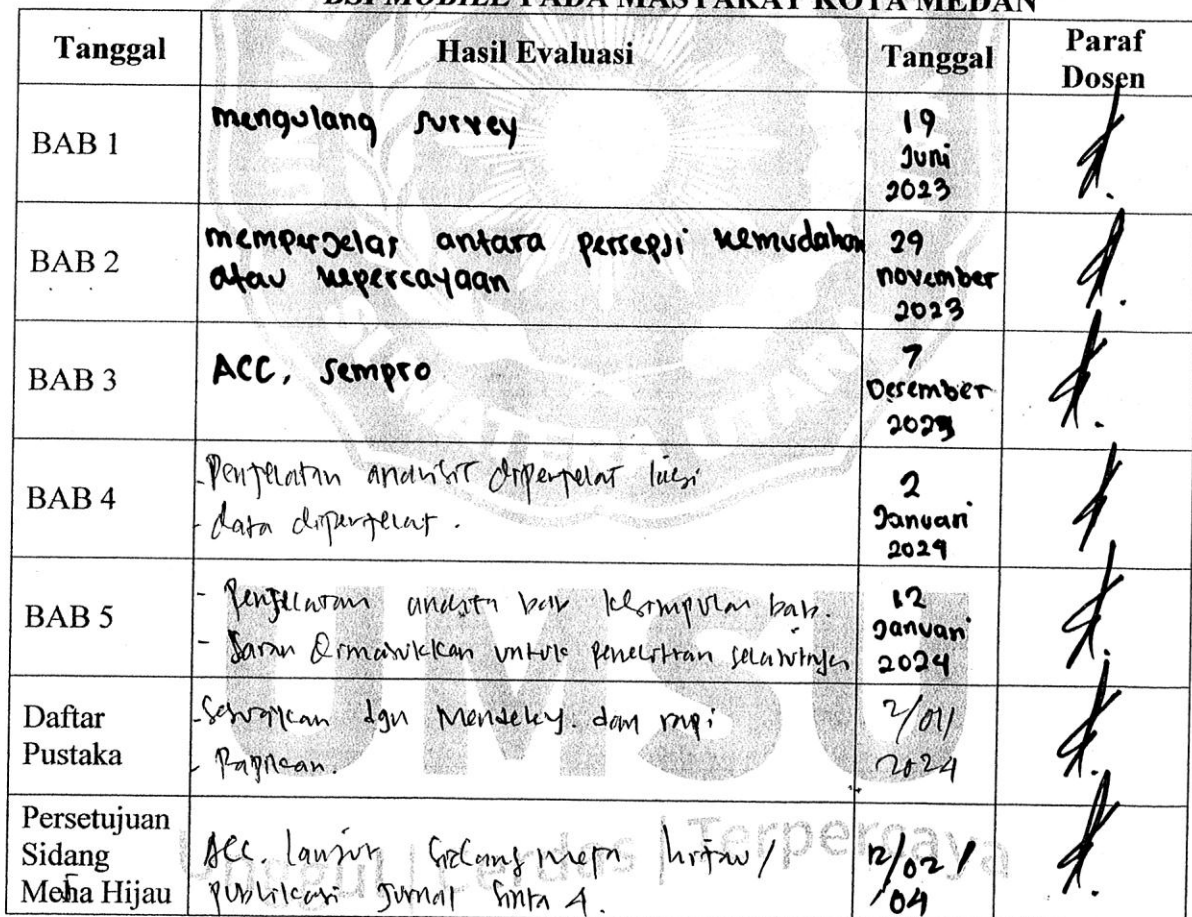 BSI MOBILE PADA MASYARAT KOTA MEDAN
Tanggal
Hasil Evaluasi
Tanggal
Paraf
Dosen
BAB 1
mengulang survey
19
Juni
2023
BAB 2
memperjelas antara persepsi kemudahan
atau kepercayaan
29
november
2023
BAB 3
ACC, sempro
7
Desember
2023
BAB 4
- Penjelasan analisis diperjelas lagi
- data diperjelas.
2
Januari
2024
BAB 5
- Penjelasan kesimpulan bab.
- Saran dimasukkan untuk penelitian selanjutnya
12
Januari
2024
Daftar
Pustaka
- Sesuaikan dgn Mendeley. dan rapi
- Rapikan.
2/01/
2024
Persetujuan
Sidang
Meha Hijau
ACC. lanjut Sidang meja hijau/
publikasi Jurnal Sinta 4.
12/02/
/04
UMSU
Unggul | Cerdas | Terpercaya